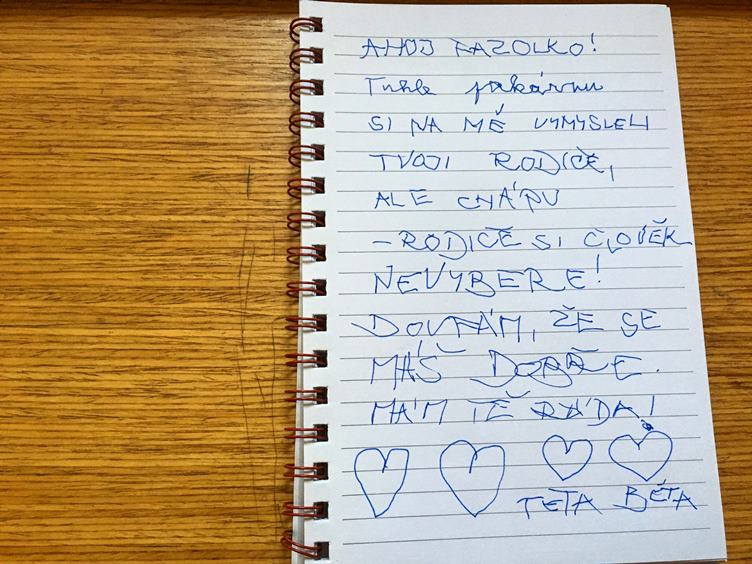 AHOJ FAZOLKO!
Tuhle pakárnu
SI NA MĚ VYMYSLELI
TVOJI RODIČE,
ALE CHÁPU
- RODIČE SI ČLOVĚK
NEVYBERE!
DOUFÁM, ŽE SE
MÁŠ DOBŘE.
MÁM TĚ RÁDA!
TETA BĚTA